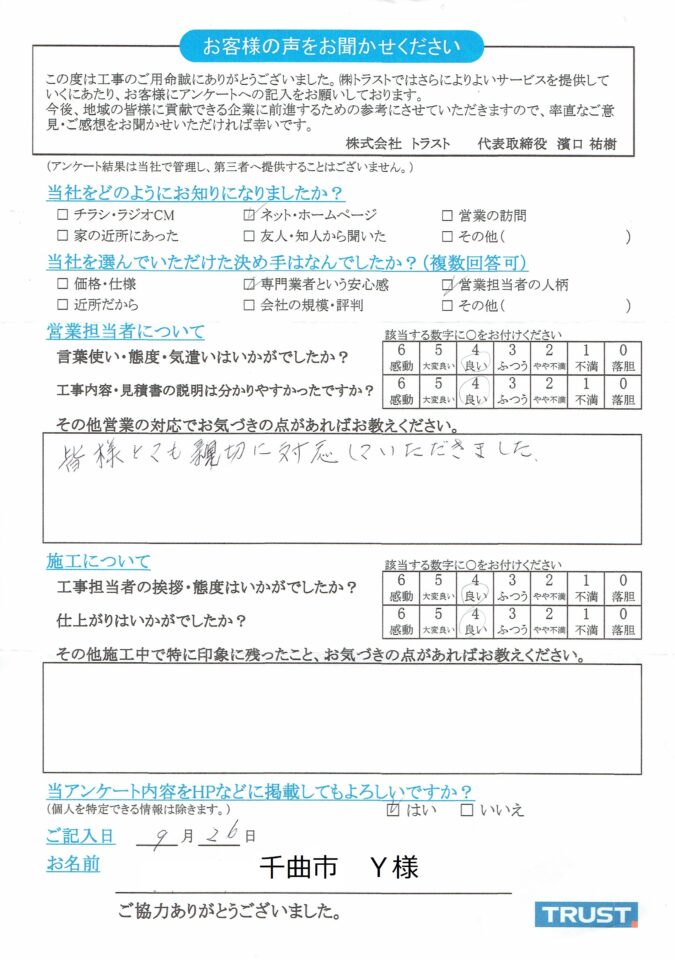 お客様の声をお聞かせください
この度は工事のご用命誠にありがとうございました。㈱トラストではさらによりよいサービスを提供して
いくにあたり、お客様にアンケートへの記入をお願いしております。
今後、地域の皆様に貢献できる企業に前進するための参考にさせていただきますので、率直なご意
見・ご感想をお聞かせいただければ幸いです。
株式会社 トラスト 代表取締役 濱口 祐樹
(アンケート結果は当社で管理し、第三者へ提供することはございません。)
当社をどのようにお知りになりましたか？
☐ チラシ・ラジオCM ☑ ネット・ホームページ ☐ 営業の訪問
☐ 家の近所にあった ☐ 友人・知人から聞いた ☐ その他( )
当社を選んでいただけた決め手はなんでしたか？(複数回答可)
☐ 価格・仕様 ☑ 専門業者という安心感 ☑ 営業担当者の人柄
☐ 近所だから ☐ 会社の規模・評判 ☐ その他( )
営業担当者について
該当する数字に○をお付けください
言葉使い・態度・気遣いはいかがでしたか？
6 5 4 3 2 1 0
感動 大変良い 良い ふつう やや不満 不満 落胆
工事内容・見積書の説明は分かりやすかったですか？
6 5 4 3 2 1 0
感動 大変良い 良い ふつう やや不満 不満 落胆
その他営業の対応でお気づきの点があればお教えください。
皆様とても親切に対応していただきました。
施工について
該当する数字に○をお付けください
工事担当者の挨拶・態度はいかがでしたか？
6 5 4 3 2 1 0
感動 大変良い 良い ふつう やや不満 不満 落胆
仕上がりはいかがでしたか？
6 5 4 3 2 1 0
感動 大変良い 良い ふつう やや不満 不満 落胆
その他施工中で特に印象に残ったこと、お気づきの点があればお教えください。
当アンケート内容をHPなどに掲載してもよろしいですか？
(個人を特定できる情報は除きます。) ☑ はい ☐ いいえ
ご記入日 9 月 26 日
お名前 千曲市 Y様
ご協力ありがとうございました。
TRUST.